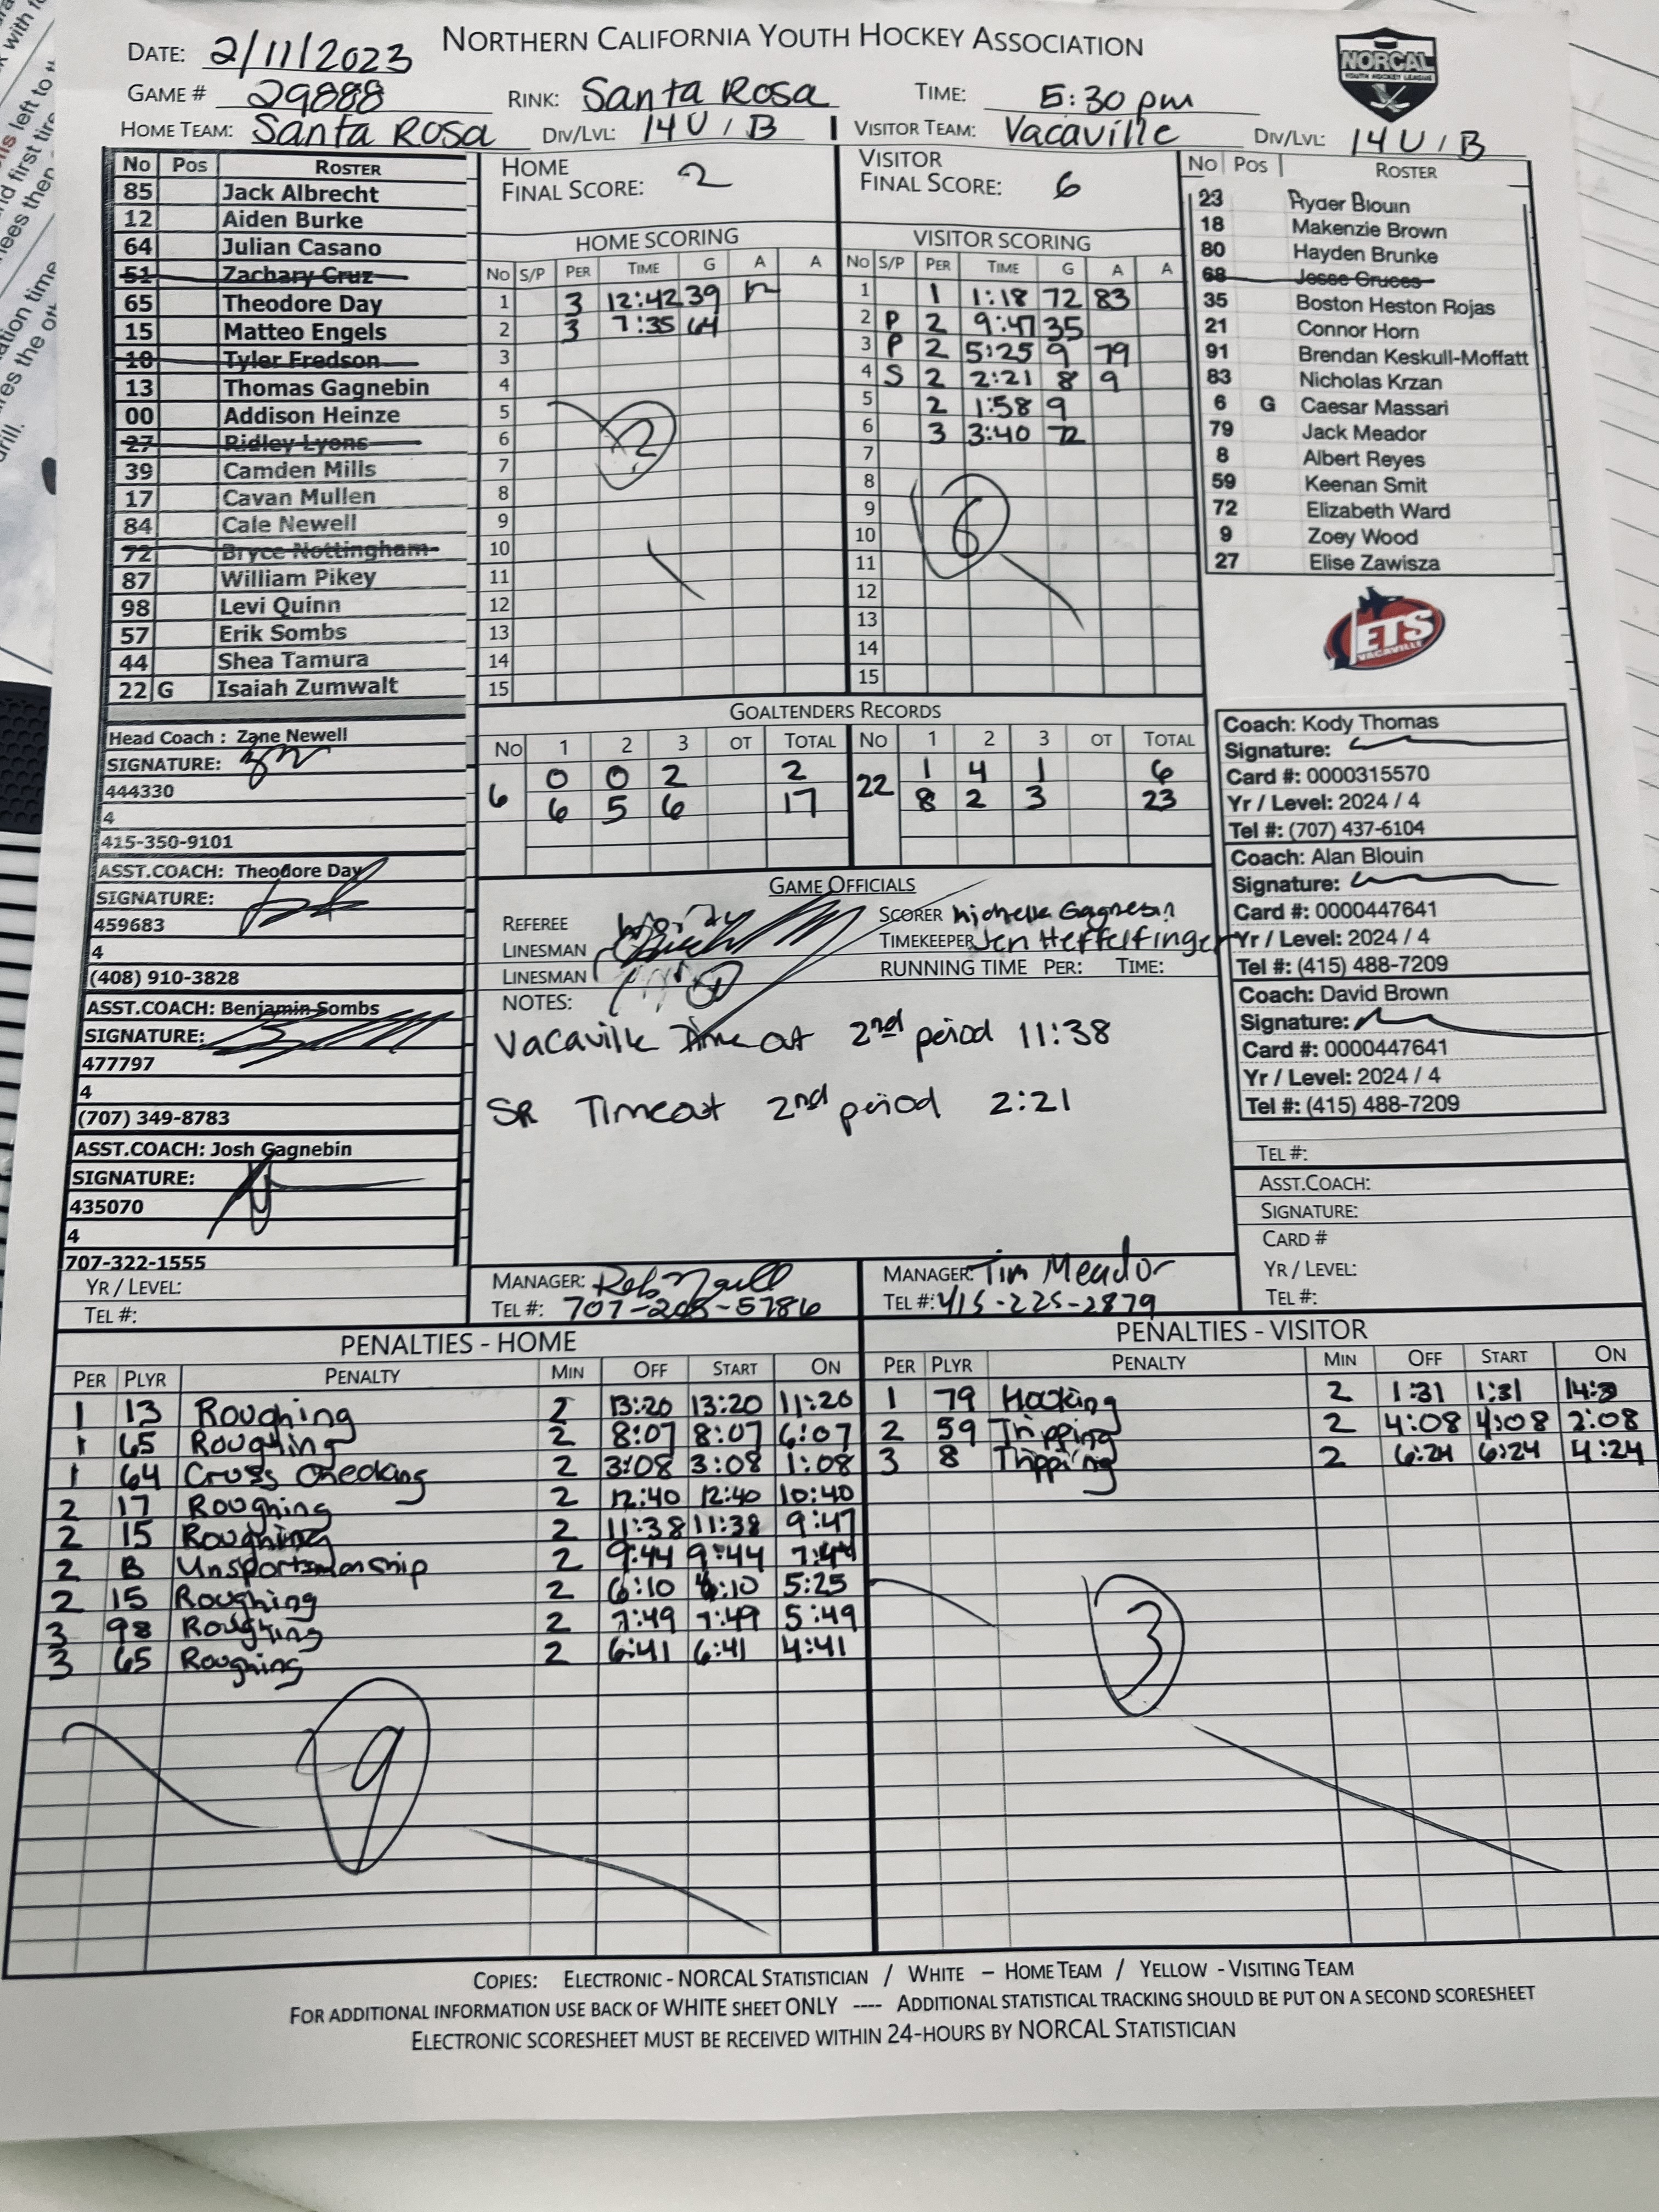 NORTHERN CALIFORNIA YOUTH HOCKEY ASSOCIATION
NORCAL
YOUTH HOCKEY LEAGUE
DATE: 2/11/2023
GAME # 29888 RINK: Santa Rosa TIME: 5:30 pm
HOME TEAM: Santa Rosa DIV/LVL: 14U / B VISITOR TEAM: Vacaville DIV/LVL: 14U / B
No Pos ROSTER
85 Jack Albrecht
12 Aiden Burke
64 Julian Casano
51 Zachary Cruz
65 Theodore Day
15 Matteo Engels
18 Tyler Fredson
13 Thomas Gagnebin
00 Addison Heinze
27 Ridley Lyons
39 Camden Mills
17 Cavan Mullen
84 Cale Newell
72 Bryce Nottingham
87 William Pikey
98 Levi Quinn
57 Erik Sombs
44 Shea Tamura
22 G Isaiah Zumwalt
HOME
FINAL SCORE: 2
HOME SCORING
No S/P PER TIME G A A
1 3 12:42 39
2 3 7:35 64
3
4
5
6
7
8
9
10
11
12
13
14
15
2
VISITOR
FINAL SCORE: 6
VISITOR SCORING
No S/P PER TIME G A A
1 1 1:18 72 83
2 P 2 9:47 35
3 P 2 5:25 9 79
4 S 2 2:21 8 9
5 2 1:58 9
6 3 3:40 72
7
8
9
10
11
12
13
14
15
6
No Pos ROSTER
23 Ryder Blouin
18 Makenzie Brown
80 Hayden Brunke
68 Jesse Cruces
35 Boston Heston Rojas
21 Connor Horn
91 Brendan Keskull-Moffatt
83 Nicholas Krzan
6 G Caesar Massari
79 Jack Meador
8 Albert Reyes
59 Keenan Smit
72 Elizabeth Ward
9 Zoey Wood
27 Elise Zawisza
JETS
VACAVILLE
GOALTENDERS RECORDS
No 1 2 3 OT TOTAL No 1 2 3 OT TOTAL
6 0 0 2 2 22 1 4 1 6
6 5 6 17 8 2 3 23
Head Coach : Zane Newell
SIGNATURE:
444330
4
415-350-9101
ASST.COACH: Theodore Day
SIGNATURE:
459683
4
(408) 910-3828
ASST.COACH: Benjamin Sombs
SIGNATURE:
477797
4
(707) 349-8783
ASST.COACH: Josh Gagnebin
SIGNATURE:
435070
4
707-322-1555
YR / LEVEL:
TEL #:
GAME OFFICIALS
REFEREE SCORER Michelle Gagnebin
LINESMAN TIMEKEEPER Jen Heffelfinger
LINESMAN RUNNING TIME PER: TIME:
NOTES:
Vacaville Time out 2nd period 11:38
SR Timeout 2nd period 2:21
Coach: Kody Thomas
Signature:
Card #: 0000315570
Yr / Level: 2024 / 4
Tel #: (707) 437-6104
Coach: Alan Blouin
Signature:
Card #: 0000447641
Yr / Level: 2024 / 4
Tel #: (415) 488-7209
Coach: David Brown
Signature:
Card #: 0000447641
Yr / Level: 2024 / 4
Tel #: (415) 488-7209
TEL #:
ASST.COACH:
SIGNATURE:
CARD #
YR / LEVEL:
TEL #:
MANAGER: Rob
TEL #: 707-
MANAGER: Tim Meador
TEL #: 415-225-2879
PENALTIES - HOME
PER PLYR PENALTY MIN OFF START ON
1 13 Roughing 2 13:20 13:20 11:20
1 65 Roughing 2 8:07 8:07 6:07
1 64 Cross Checking 2 3:08 3:08 1:08
2 17 Roughing 2 12:40 12:40 10:40
2 15 Roughing 2 11:38 11:38 9:47
2 B Unsportsmanship 2 9:44 9:44 7:44
2 15 Roughing 2 6:10 6:10 5:25
3 98 Roughing 2 7:49 7:49 5:49
3 65 Roughing 2 6:41 6:41 4:41
9
PENALTIES - VISITOR
PER PLYR PENALTY MIN OFF START ON
1 79 Hooking 2 1:31 1:31
2 59 Tripping 2 4:08 4:08 2:08
3 8 Tripping 2 6:24 6:24 4:24
3
COPIES: ELECTRONIC - NORCAL STATISTICIAN / WHITE – HOME TEAM / YELLOW - VISITING TEAM
FOR ADDITIONAL INFORMATION USE BACK OF WHITE SHEET ONLY ---- ADDITIONAL STATISTICAL TRACKING SHOULD BE PUT ON A SECOND SCORESHEET
ELECTRONIC SCORESHEET MUST BE RECEIVED WITHIN 24-HOURS BY NORCAL STATISTICIAN